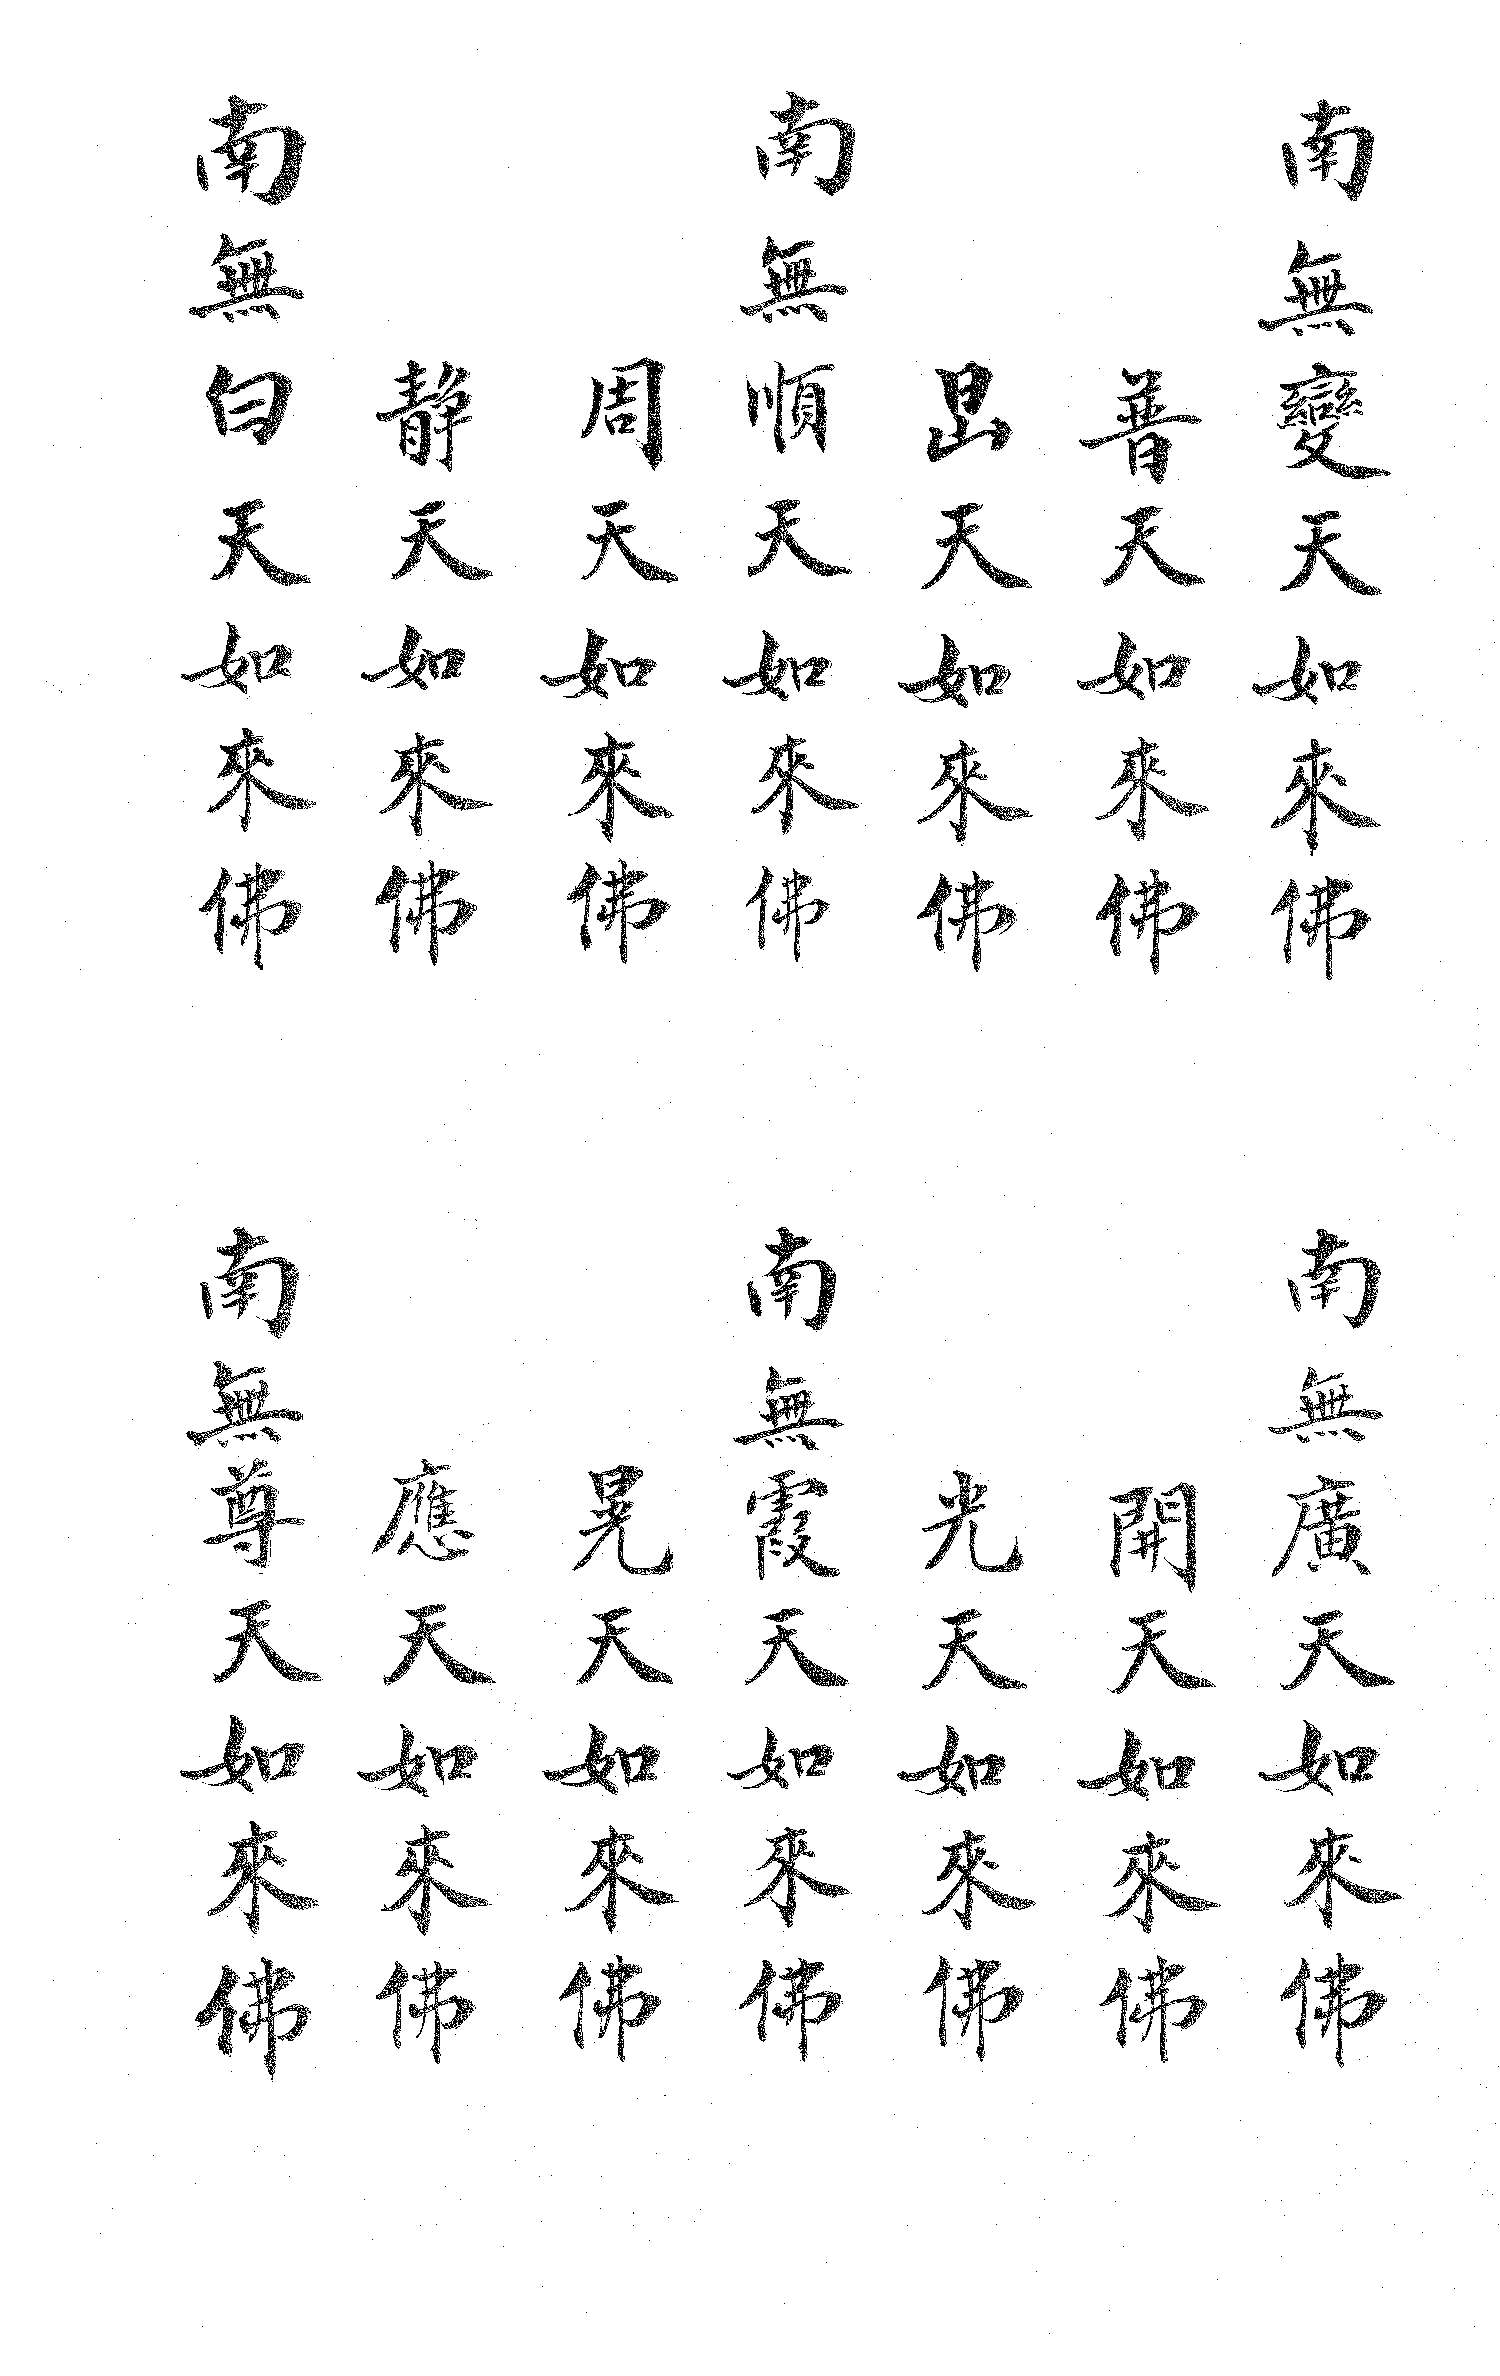 南無變天如來佛
普天如來佛
旵天如來佛
南無順天如來佛
周天如來佛
静天如來佛
南無白天如來佛
南無廣天如來佛
開天如來佛
光天如來佛
南無霞天如來佛
晃天如來佛
應天如來佛
南無尊天如來佛